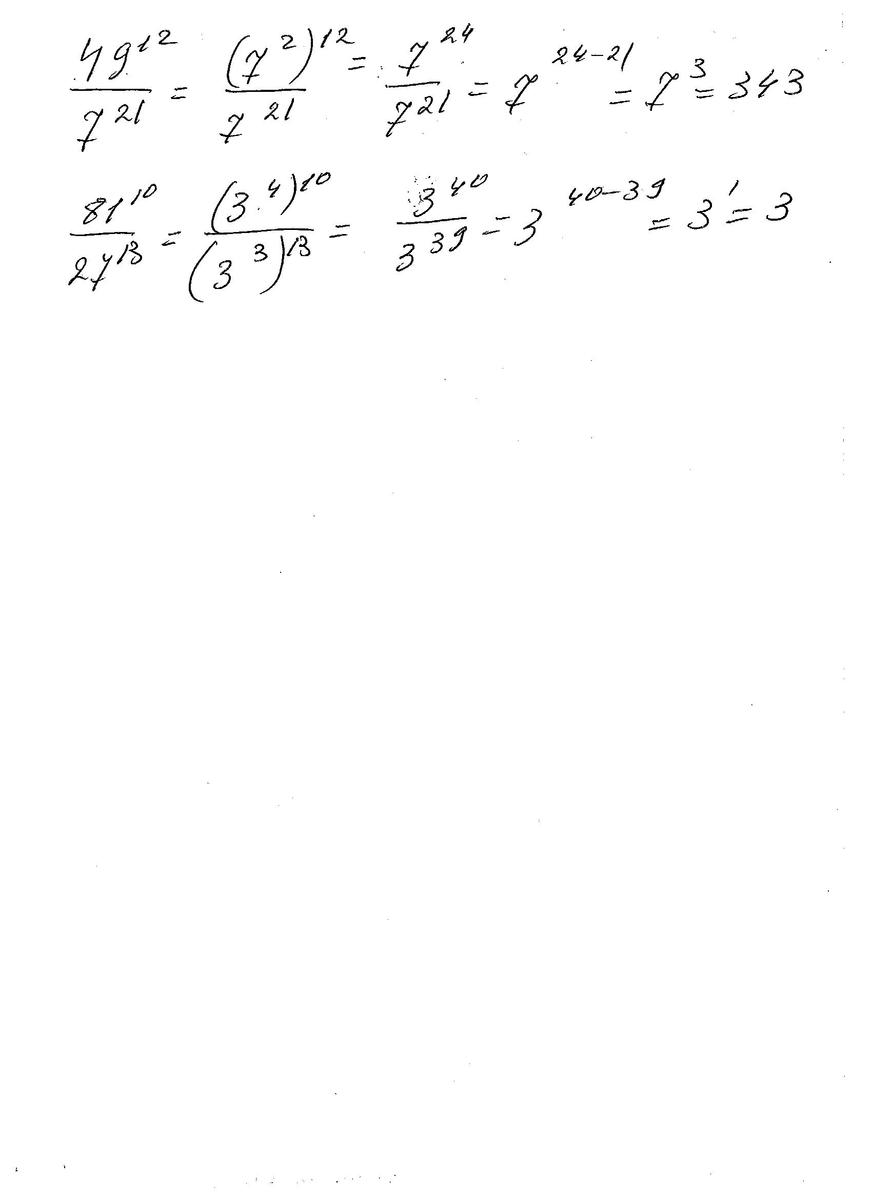 49^12/7^21 = (7^2)^12/7^21 = 7^24/7^21 = 7^24-21 = 7^3 = 343
81^10/27^13 = (3^4)^10/(3^3)^13 = 3^40/3^39 = 3^40-39 = 3^1 = 3